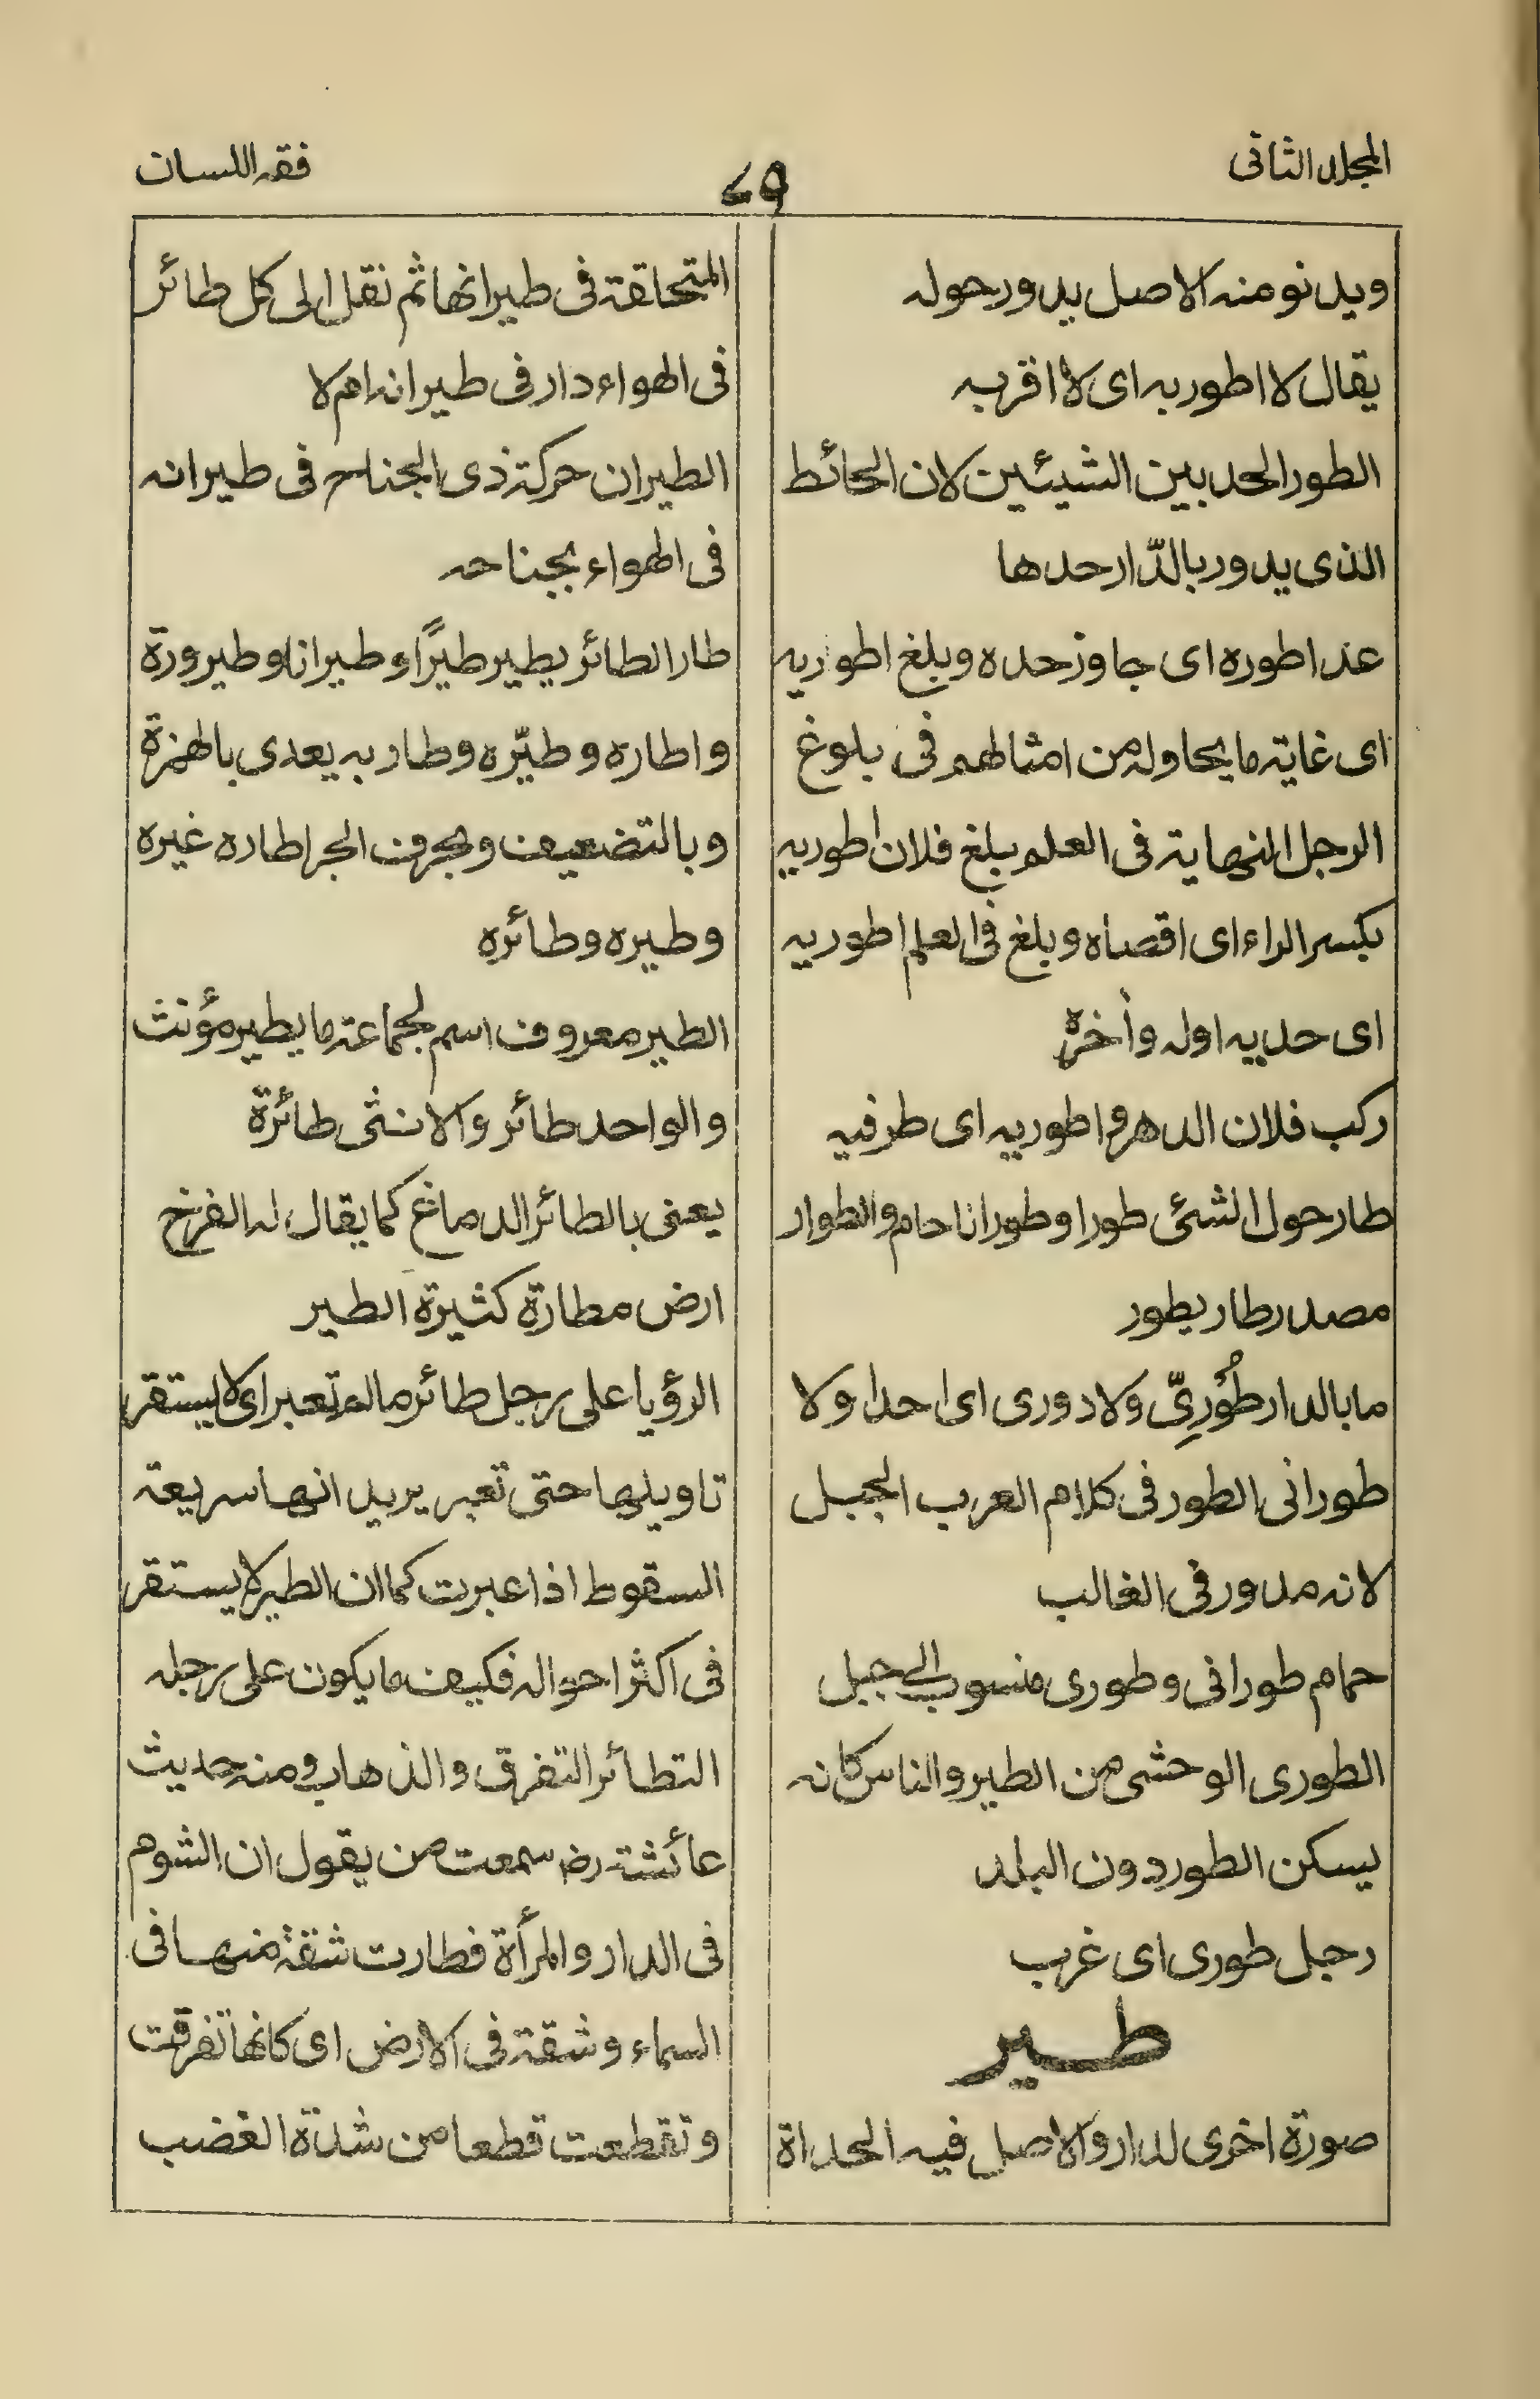 المجلد الثانى
69
فقه اللسان
ويدنو منه الاصل يدور حوله
يقال لا اطور به اى لا اقربه
الطور الحد بين الشيئين لان الحائط
الذى يدور بالدّار حدها
عدا طوره اى جاوز حده وبلغ اطوريه
اى غاية ما يحاوله من امثالهم فى بلوغ
الرجل النهاية فى العلم بلغ فلان اطوريه
بكسر الراء اى اقصاه وبلغ فى العلم اطوريه
اى حديه اوله وأخره
ركب فلان الدهر و اطوريه اى طرفيه
طار حول الشئ طورا وطورانا حام والطوار
مصدر طار يطور
ما بالدار طُورِىّ ولا دورى اى احدا ولا
طورانى الطور فى كلام العرب الجبل
لانه مدور فى الغالب
حمام طورانى وطورى منسوب الى جبل
الطورى الوحشى من الطير والناس كانه
يسكن الطور دون البلد
رجل طورى اى غرب
طير
صورة اخرى لدار والاصل فيه الحداة
المتحلقة فى طيرانها ثم نقل الى كل طائر
فى الهواء دار فى طيرانه ام لا
الطيران حركة ذى الجناح فى طيرانه
فى الهواء بجناحه
طار الطائر يطير طيرًا و طيرانا و طيرورة
واطاره و طيّره و طار به يعدى بالهمزة
وبالتضعيف وبحرف الجر اطاره غيره
وطيره وطائره
الطير معروف اسم لجماعة ما يطير مؤنث
والواحد طائر والانثى طائرة
يعنى بالطائر الدماغ كما يقال له الفرخ
ارض مطارة كثيرة الطير
الرؤيا على رجل طائر ما لم تعبر اى لا يستقر
تاويلها حتى تعبر يريد انها سريعة
السقوط اذا عبرت كما ان الطير لا يستقر
فى اكثر احواله فكيف ما يكون على رجله
التطائر التفرق والذهاب ومنه حديث
عائشة رض سمعت من يقول ان الشوم
فى الدار والمرأة فطارت شقة منها فى
السماء وشقة فى الارض اى كانها تفرقت
وتقطعت قطعا من شدة الغضب